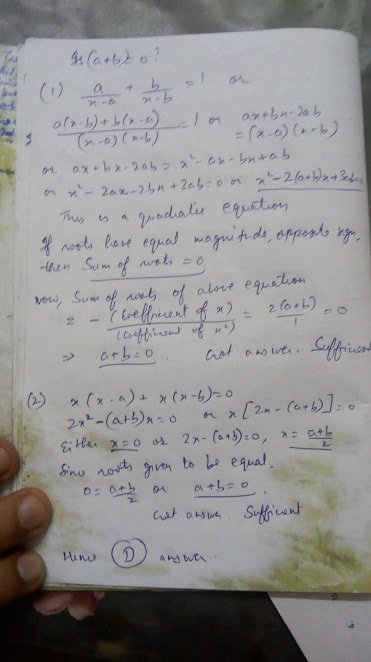 Is (a+b)=0?
(1) a/(x-a) + b/(x-b) = 1 or
a(x-b)+b(x-a)/(x-a)(x-b) = 1 or ax+bx-2ab = (x-a)(x-b)
or ax+bx-2ab = x²-ax-bx+ab
or x²-2ax-2bx+3ab=0 or x²-2(a+b)x+3ab=0
This is a quadratic equation
If roots have equal magnitude, opposite sign,
then Sum of roots = 0
now, Sum of roots of above equation
= -(Coefficient of x)/(Coefficient of x²) = 2(a+b)/1 = 0
⇒ a+b=0. Got answer. Sufficient
(2) x(x-a)+x(x-b)=0
2x²-(a+b)x=0 or x[2x-(a+b)]=0
Either x=0 or 2x-(a+b)=0, x=a+b/2
Since roots given to be equal.
0=a+b/2 or a+b=0.
Got answer Sufficient
Hence (D) answer.